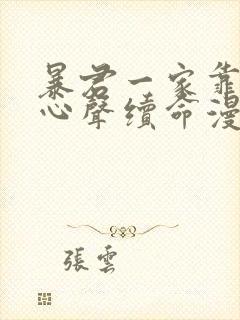 暴君一家靠
心聲續命漫
張雲